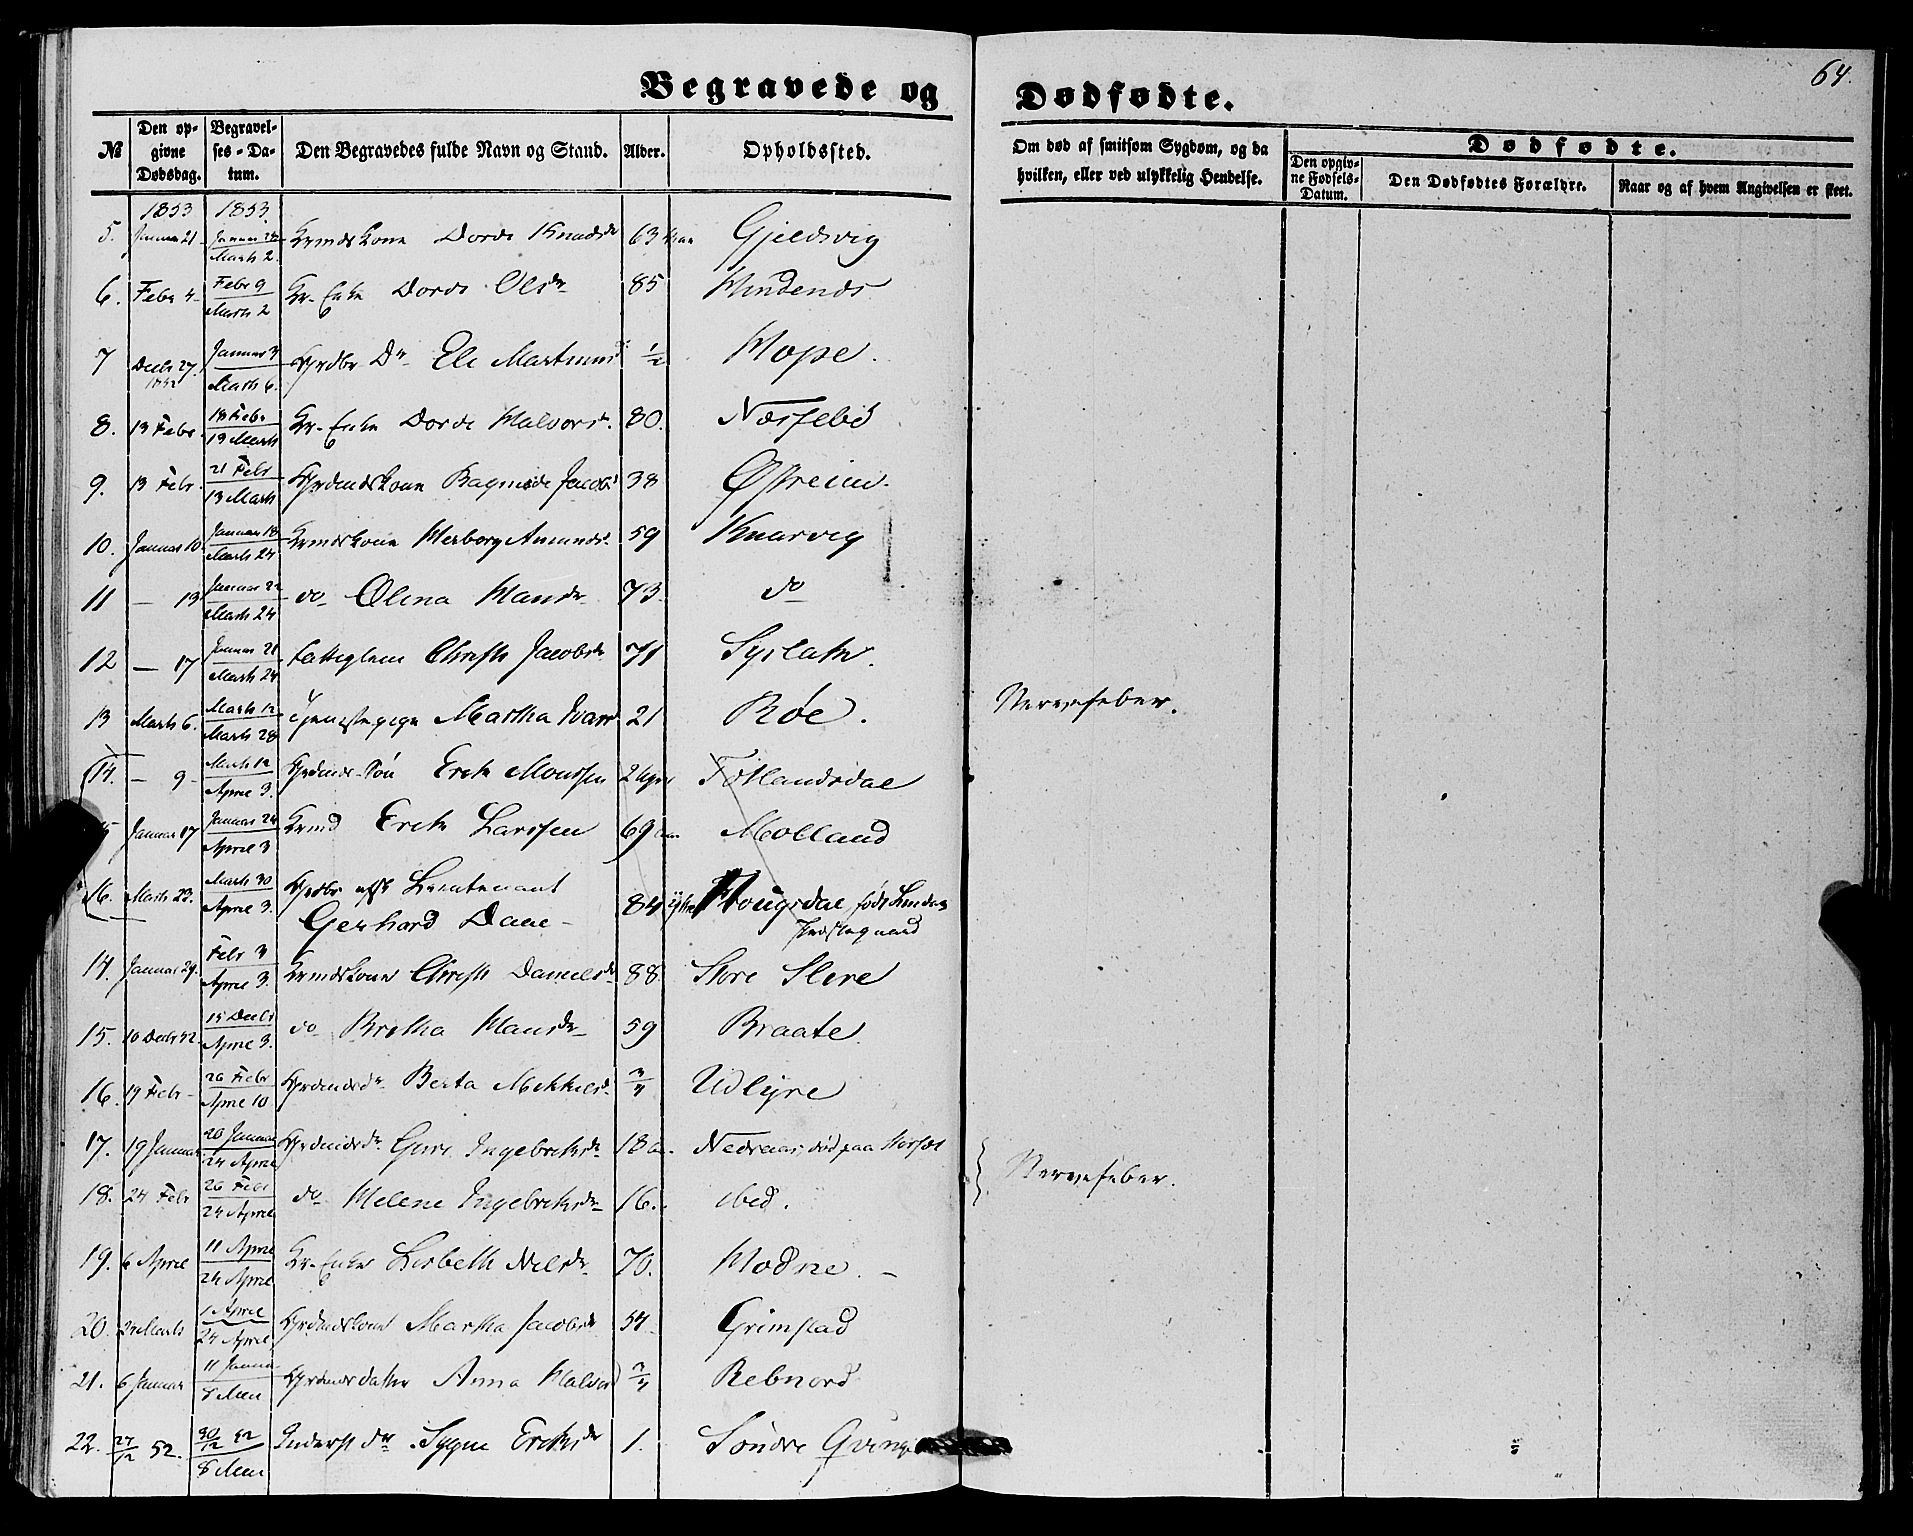 Begravede og
Dødfødte.
64.
№
Den opgivne Dødsdag.
Begravelses-Datum.
Den Begravedes fulde Navn og Stand.
Alder.
Opholdssted.
Om død af smitsom Sygdom, og da hvilken, eller ved ulykkelig Hendelse.
Dødfødte.
Den opgivne Fødsels-Datum.
Den Dødfødtes Forældre.
Naar og af hvem Angivelsen er skeet.
1853 1853.
5. Januar 21 Januar 28 Marts 2. Dorde Knudsdr 63 Gjeldsvig
6. Febr 4 Febr 9 Marts 2 Kr-Enke Dorde Olsdr 85 Hindenes
7 Decbr 27. 1852 Januar 3 Marts 6. Grdbr Dr Eli Martinusd ½ Hope.
8. 13 Febr. 18 Febr 13 Marts Kr-Enke Dorde Halvorsd. 80. Næssebø
9. 13 Febr. 21 Febr 13 Marts Grdmdskone Ragnilde Jacobsd 38 Østreim
10. Januar 10 Januar 18 Marts 24 Krmdskone Herborg Amundsd. 59 Knarvig
11 — 13 Januar 22 Marts 24 do Olina Hansdr 73. do
12 — 17 Januar 21 Marts 24 Fattiglem Christi Jacobsdr 71 Syslath.
13 Marts 6. Marts 12 Marts 28 Tjenestepige Martha Ivarsd 21 Røe. Nervefeber.
14. — 9 — Marts 12 April 3. Grdmds Søn Erik Monssen 2 Uger Totlandsdal
Januar 17 Januar 24 April 3 Krmd Erik Larssen 69 Molland
16. Marts 23. Marts 30 April 3. Grdbr afsk Lieutenant
Gerhard Daae — 84 Hougsdal, født Lindaas
Præstegaard
14. Januar 29. Febr 3 April 3. Krmdskone Christi Danielsdr 88. Store Slire
15. 10 Decbr 52. 15 Decbr April 3. do Britha Hansdr 59 Braate.
16. 19 Febr 26 Febr April 10 Grdmdsdr Berta Mikkelsd. ¾ Udlyre
17. 19 Januar 20 Januar 24 April Grdmdsdr Guri Ingebriktsdr 18 a. Nedreaas, død paa
18. 24 Febr 26 Febr 24 April do Helene Ingebriktsdr 16. ibid. Nervefeber.
19. 6 April 11 April 24 April Kr-Enke Lisbeth Nilsdr 70. Hodne. —
20. 24 Marts 1 April 24 April Grdmdskone Martha Jacobsdr 54. Grimstad
21. 6 Januar 11 Januar 8 Mai Grdmdsdatter Anna Halvorsd ¾ Rebnord
22. 27/12 52. 30/12 52 8 Mai Inderst dr Sygni Eriksdr 1. Søndre Qvinge